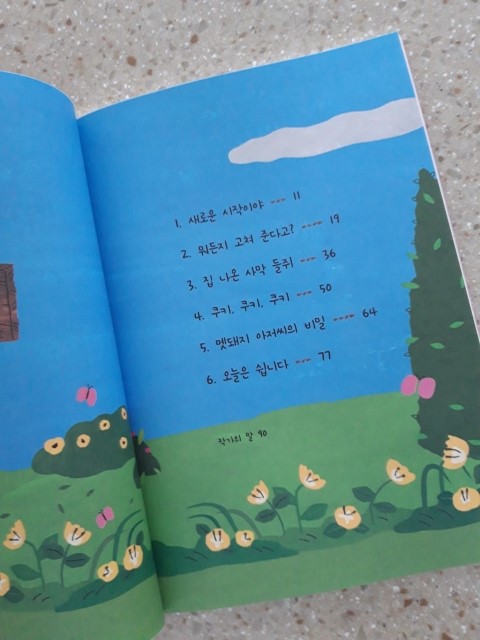 1. 새로운 시작이야 --- 11
2. 뭐든지 고쳐 준다고? ---- 19
3. 집 나온 사막 들쥐 --- 36
4. 쿠키, 쿠키, 쿠키 --- 50
5. 멧돼지 아저씨의 비밀 ---- 64
6. 오늘은 쉽니다 --- 77
작가의 말 90